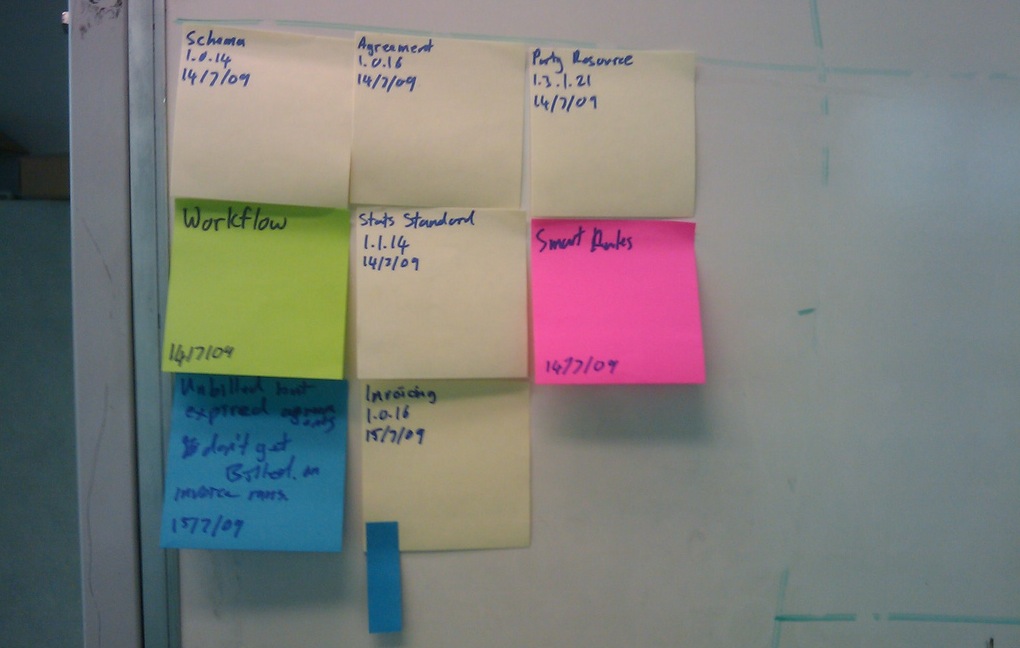 Schema
1.0.14
14/7/09
Agreement
1.0.16
14/7/09
Party Resource
1.3.1.21
14/7/09
Workflow
14/7/09
Stats Standard
1.1.14
14/7/09
Smart Rules
14/7/09
Unbilled but
expired agreem
ents
don't get
Billed on
invoice runs.
15/7/09
Invoicing
1.0.16
15/7/09